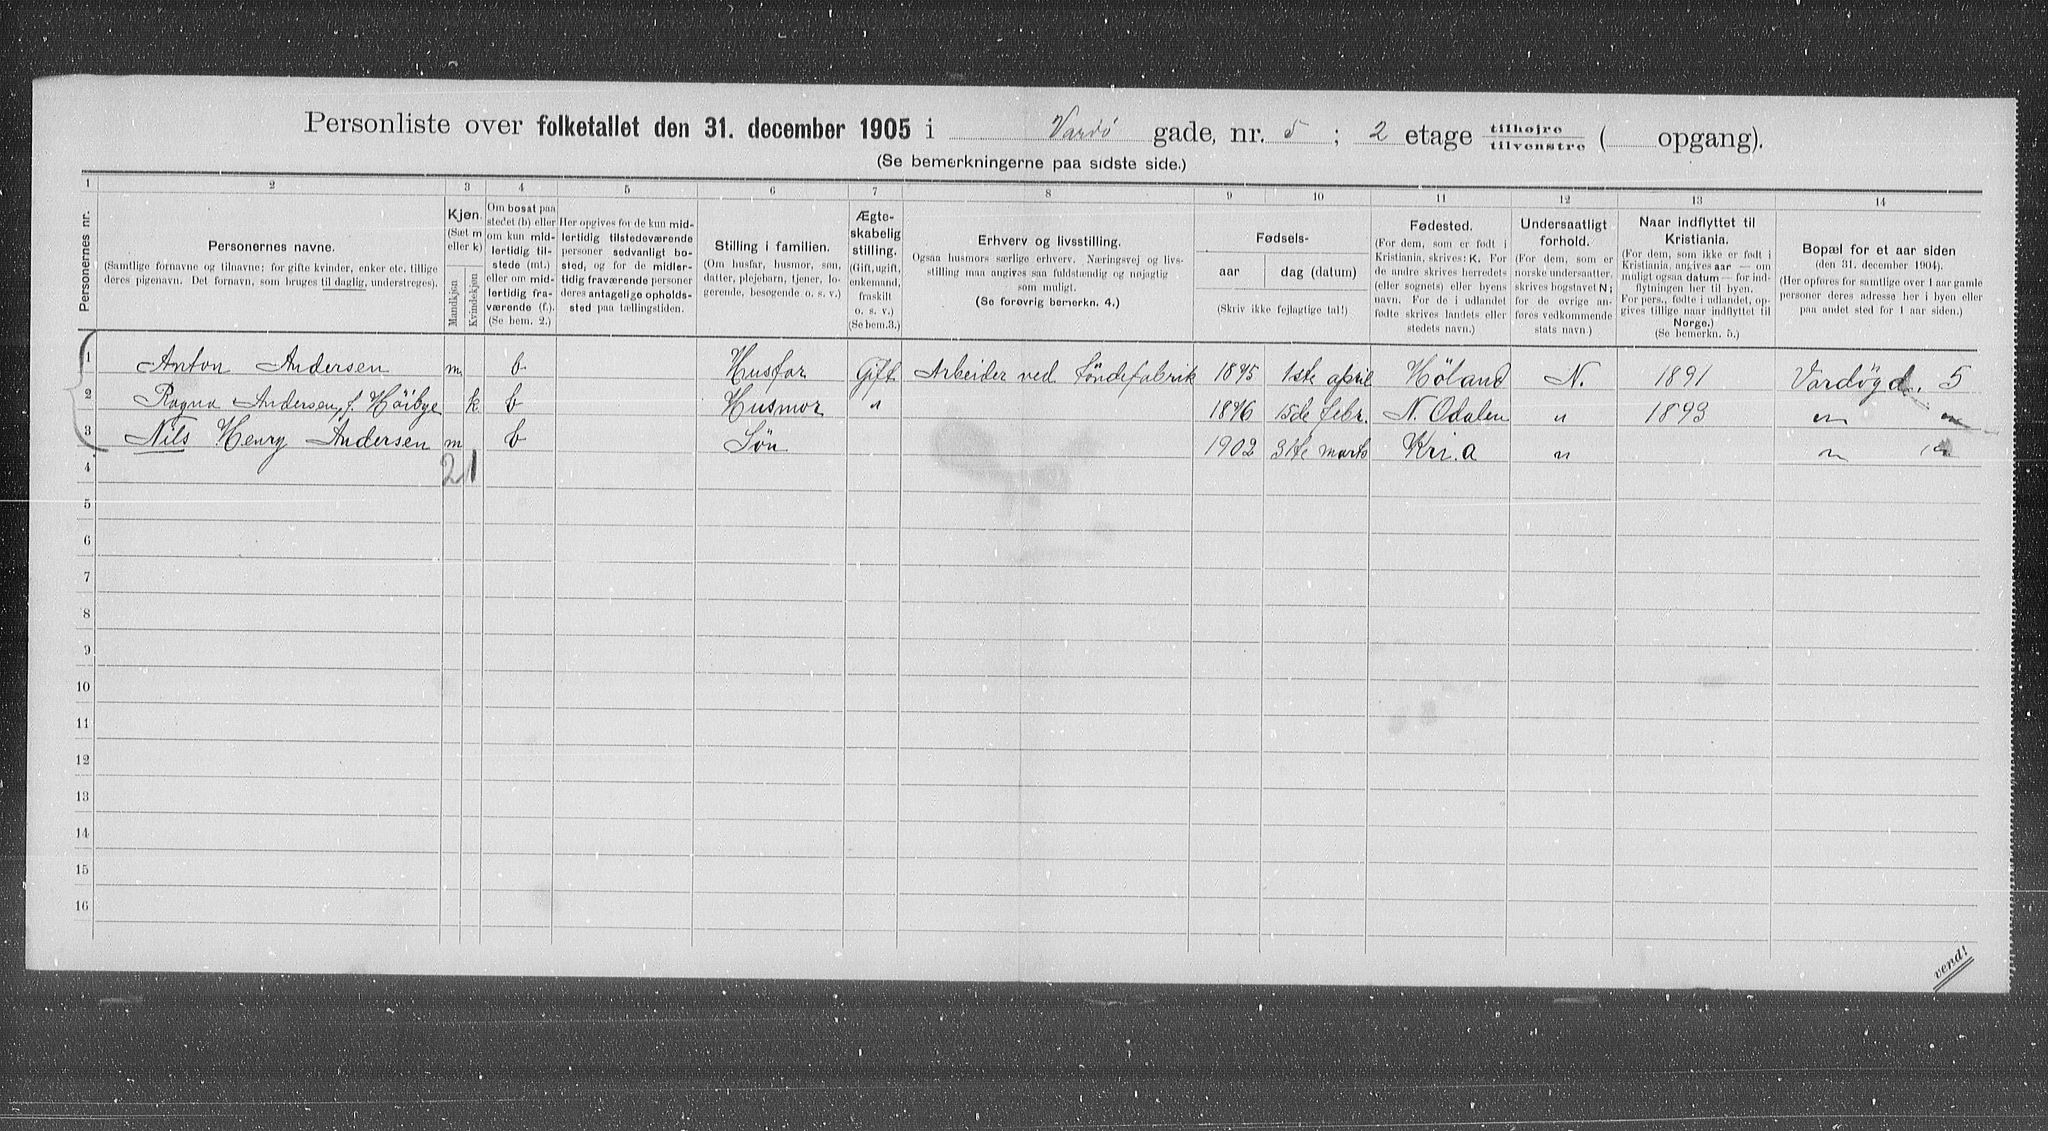 Personliste over folketallet den 31. december 1905 i Vardø gade, nr. 5; 2 etage tilhøjre tilvenstre ( opgang).
(Se bemerkningerne paa sidste side.)
1 2 3 4 5 6 7 8 9 10 11 12 13 14
Personernes nr.
Personernes navne.
(Samtlige fornavne og tilnavne; for gifte kvinder, enker etc. tillige
deres pigenavn. Det fornavn, som bruges til daglig, understreges).
Kjøn.
(Sæt m
eller k)
Mandkjøn
Kvindekjøn
Om bosat paa
stedet (b) eller
om kun mid-
lertidig til-
stede (mt.)
eller om mid-
lertidig fra-
værende (f.).
(Se bem. 2.)
Her opgives for de kun mid-
lertidig tilstedeværende
personer sedvanligt bo-
sted, og for de midler-
tidig fraværende personer
deres antagelige opholds-
sted paa tællingstiden.
Stilling i familien.
(Om husfar, husmor, søn,
datter, plejebarn, tjener, lo-
gerende, besøgende o. s. v.)
Ægte-
skabelig
stilling.
(Gift, ugift,
enkemand,
fraskilt
o. s. v.)
(Se bem.3.)
Erhverv og livsstilling.
Ogsaa husmors særlige erhverv. Næringsvej og livs-
stilling maa angives saa fuldstændig og nøjagtig
som muligt.
(Se forøvrig bemerkn. 4.)
Fødsels-
aar dag (datum)
(Skriv ikke fejlagtige tal!)
Fødested.
(For dem, som er født i
Kristiania, skrives: K. For
de andre skrives herredets
(eller sognets) eller byens
navn. For de i udlandet
fødte skrives landets eller
stedets navn.)
Undersaatligt
forhold.
(For dem, som er
norske undersaatter,
skrives bogstavet N;
for de øvrige an-
føres vedkommende
stats navn.)
Naar indflyttet til
Kristiania.
(For dem, som ikke er født i
Kristiania, angives aar — om
muligt ogsaa datum — for ind-
flytningen her til byen.
For pers., fødte i udlandet, op-
gives tillige naar indflyttet til
Norge.)
(Se bemerkn. 5.)
Bopæl for et aar siden
(den 31. december 1904).
(Her opføres for samtlige over 1 aar gamle
personer deres adresse her i byen eller
paa andet sted for 1 aar siden.)
1 Anton Andersen m b Husfar Gift Arbeider ved Töndefabrik 1875 1ste april Höland N. 1891 Vardøgd. 5
2 Ragna Andersen, f. Höibye k b Husmor " 1876 15de febr. N. Odalen " 1893 " "
3 Nils Henry Andersen m b Sön 1902 31te marts Kri.a " " "
4 2 1
5
6
7
8
9
10
11
12
13
14
15
16
vend!